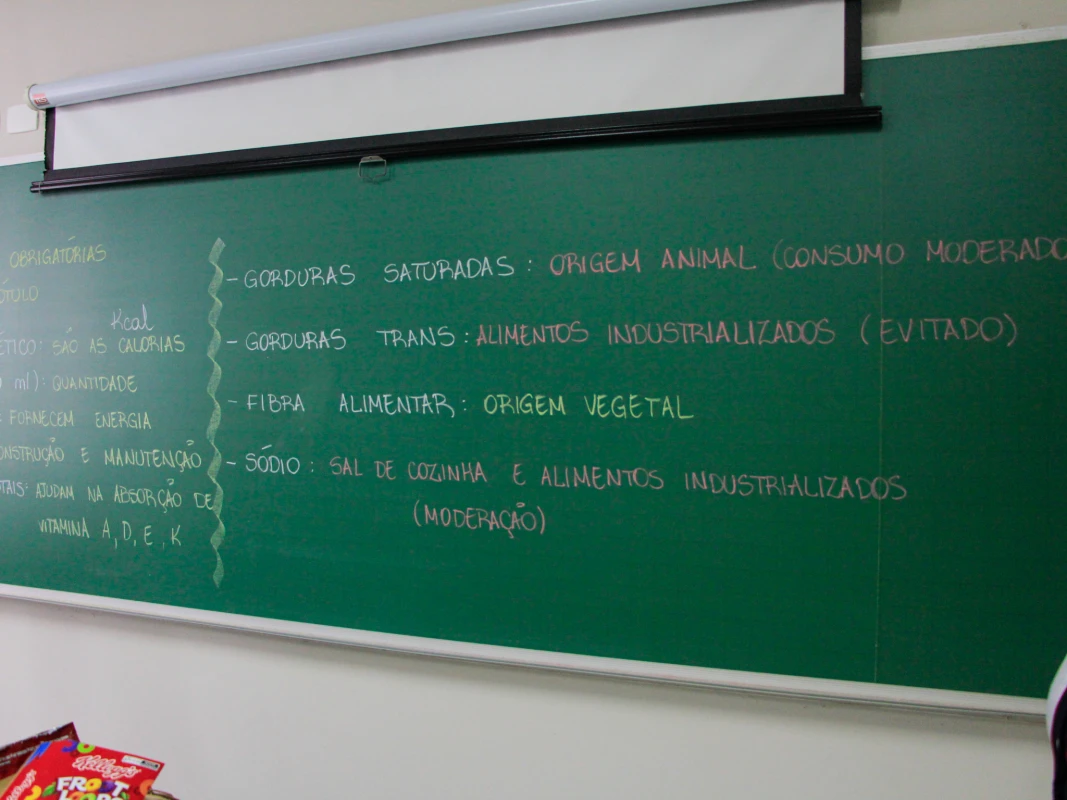 OBRIGATÓRIAS
Kcal
SÃO AS CALORIAS
ml): QUANTIDADE
FORNECEM ENERGIA
E MANUTENÇÃO
AJUDAM NA ABSORÇÃO DE
VITAMINA A, D, E, K
- GORDURAS SATURADAS: ORIGEM ANIMAL (CONSUMO MODERADO
- GORDURAS TRANS: ALIMENTOS INDUSTRIALIZADOS (EVITADO)
- FIBRA ALIMENTAR: ORIGEM VEGETAL
- SÓDIO: SAL DE COZINHA E ALIMENTOS INDUSTRIALIZADOS
(MODERAÇÃO)
Kellogg's
FROOT
LOOPS